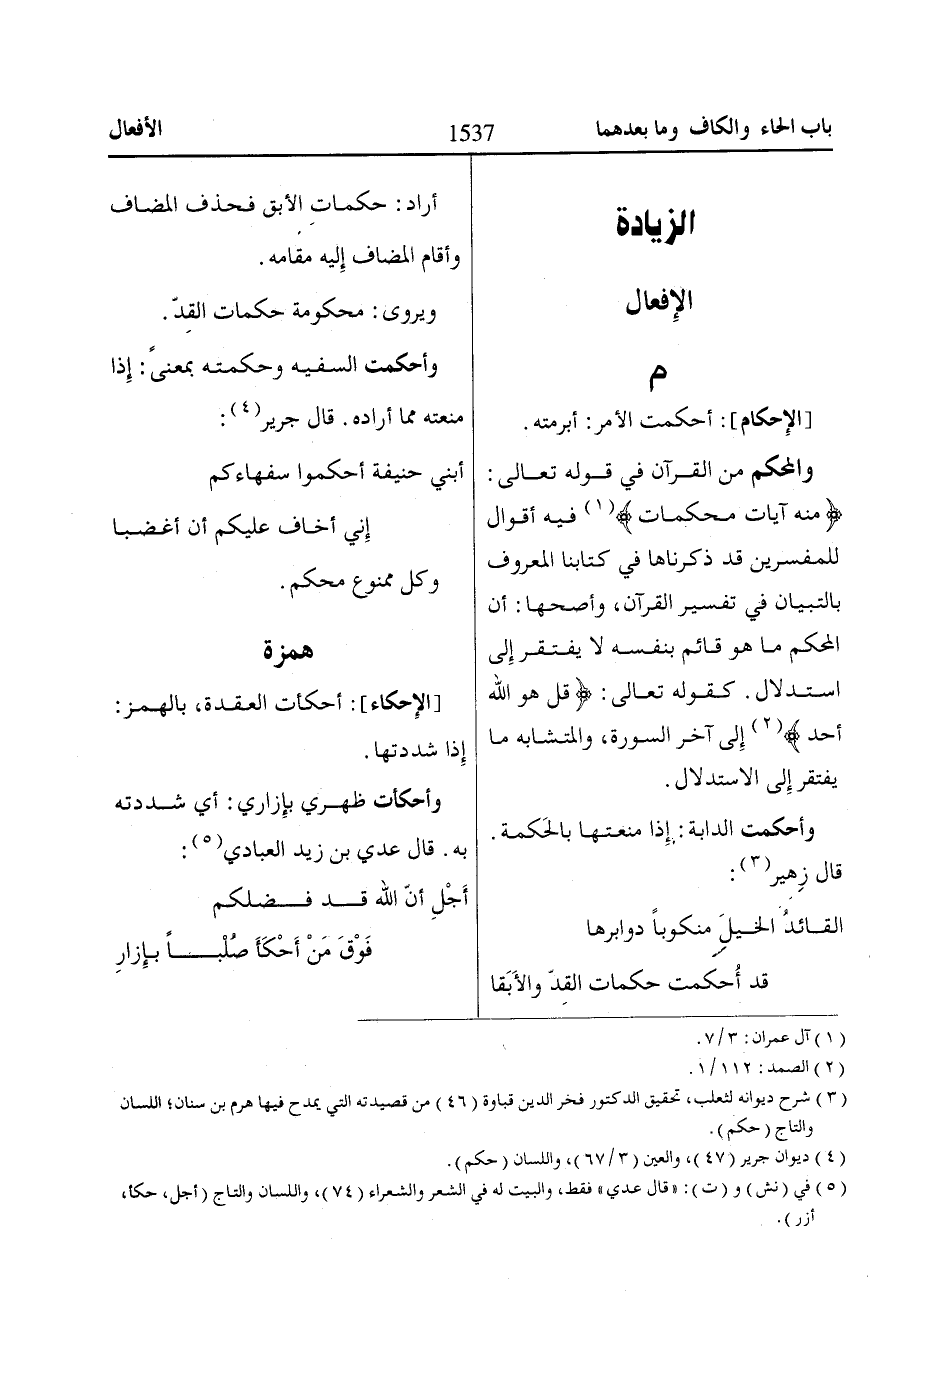 باب الحاء والكاف وما بعدهما 1537 الأفعال
الزيادة
الإفعال
م
[الإحكام]: أحكمت الأمر: أبرمته.
والمحكم من القرآن في قوله تعالى:
﴿منه آيات محكمات﴾(١) فيه أقوال
للمفسرين قد ذكرناها في كتابنا المعروف
بالتبيان في تفسير القرآن، وأصحها: أن
المحكم ما هو قائم بنفسه لا يفتقر إلى
استدلال. كقوله تعالى: ﴿قل هو الله
أحد﴾(٢) إلى آخر السورة، والمتشابه ما
يفتقر إلى الاستدلال.
وأحكمت الدابة: إذا منعتها بالحَكمة.
قال زهير(٣):
القائدُ الخيلَ منكوباً دوابرها
قد أُحكمت حكمات القدّ والأَبَقا
أراد: حكماتِ الأبق فحذف المضاف
وأقام المضاف إليه مقامه.
ويروى: محكومة حكمات القدّ.
وأحكمت السفيه وحكمته بمعنىً: إذا
منعته مما أراده. قال جرير(٤):
أبني حنيفة أحكموا سفهاءكم
إني أخاف عليكم أن أغضبا
وكل ممنوع محكم.
همزة
[الإحكاء]: أحكأت العقدة، بالهمز:
إذا شددتها.
وأحكأت ظهري بإزاري: أي شددته
به. قال عدي بن زيد العبادي(٥):
أَجْلِ أنّ الله قد فضلكم
فَوْقَ مَنْ أَحْكَأَ صُلْباً بإزارِ
(١) آل عمران: ٧/٣.
(٢) الصمد: ١/١١٢.
(٣) شرح ديوانه لثعلب، تحقيق الدكتور فخر الدين قباوة (٤٦) من قصيدته التي يمدح فيها هرم بن سنان؛ اللسان
والتاج (حكم).
(٤) ديوان جرير (٤٧)، والعين (٦٧/٣)، واللسان (حكم).
(٥) في (نش) و (ت): «قال عدي» فقط، والبيت له في الشعر والشعراء (٧٤)، واللسان والتاج (أجل، حكأ،
أزر).